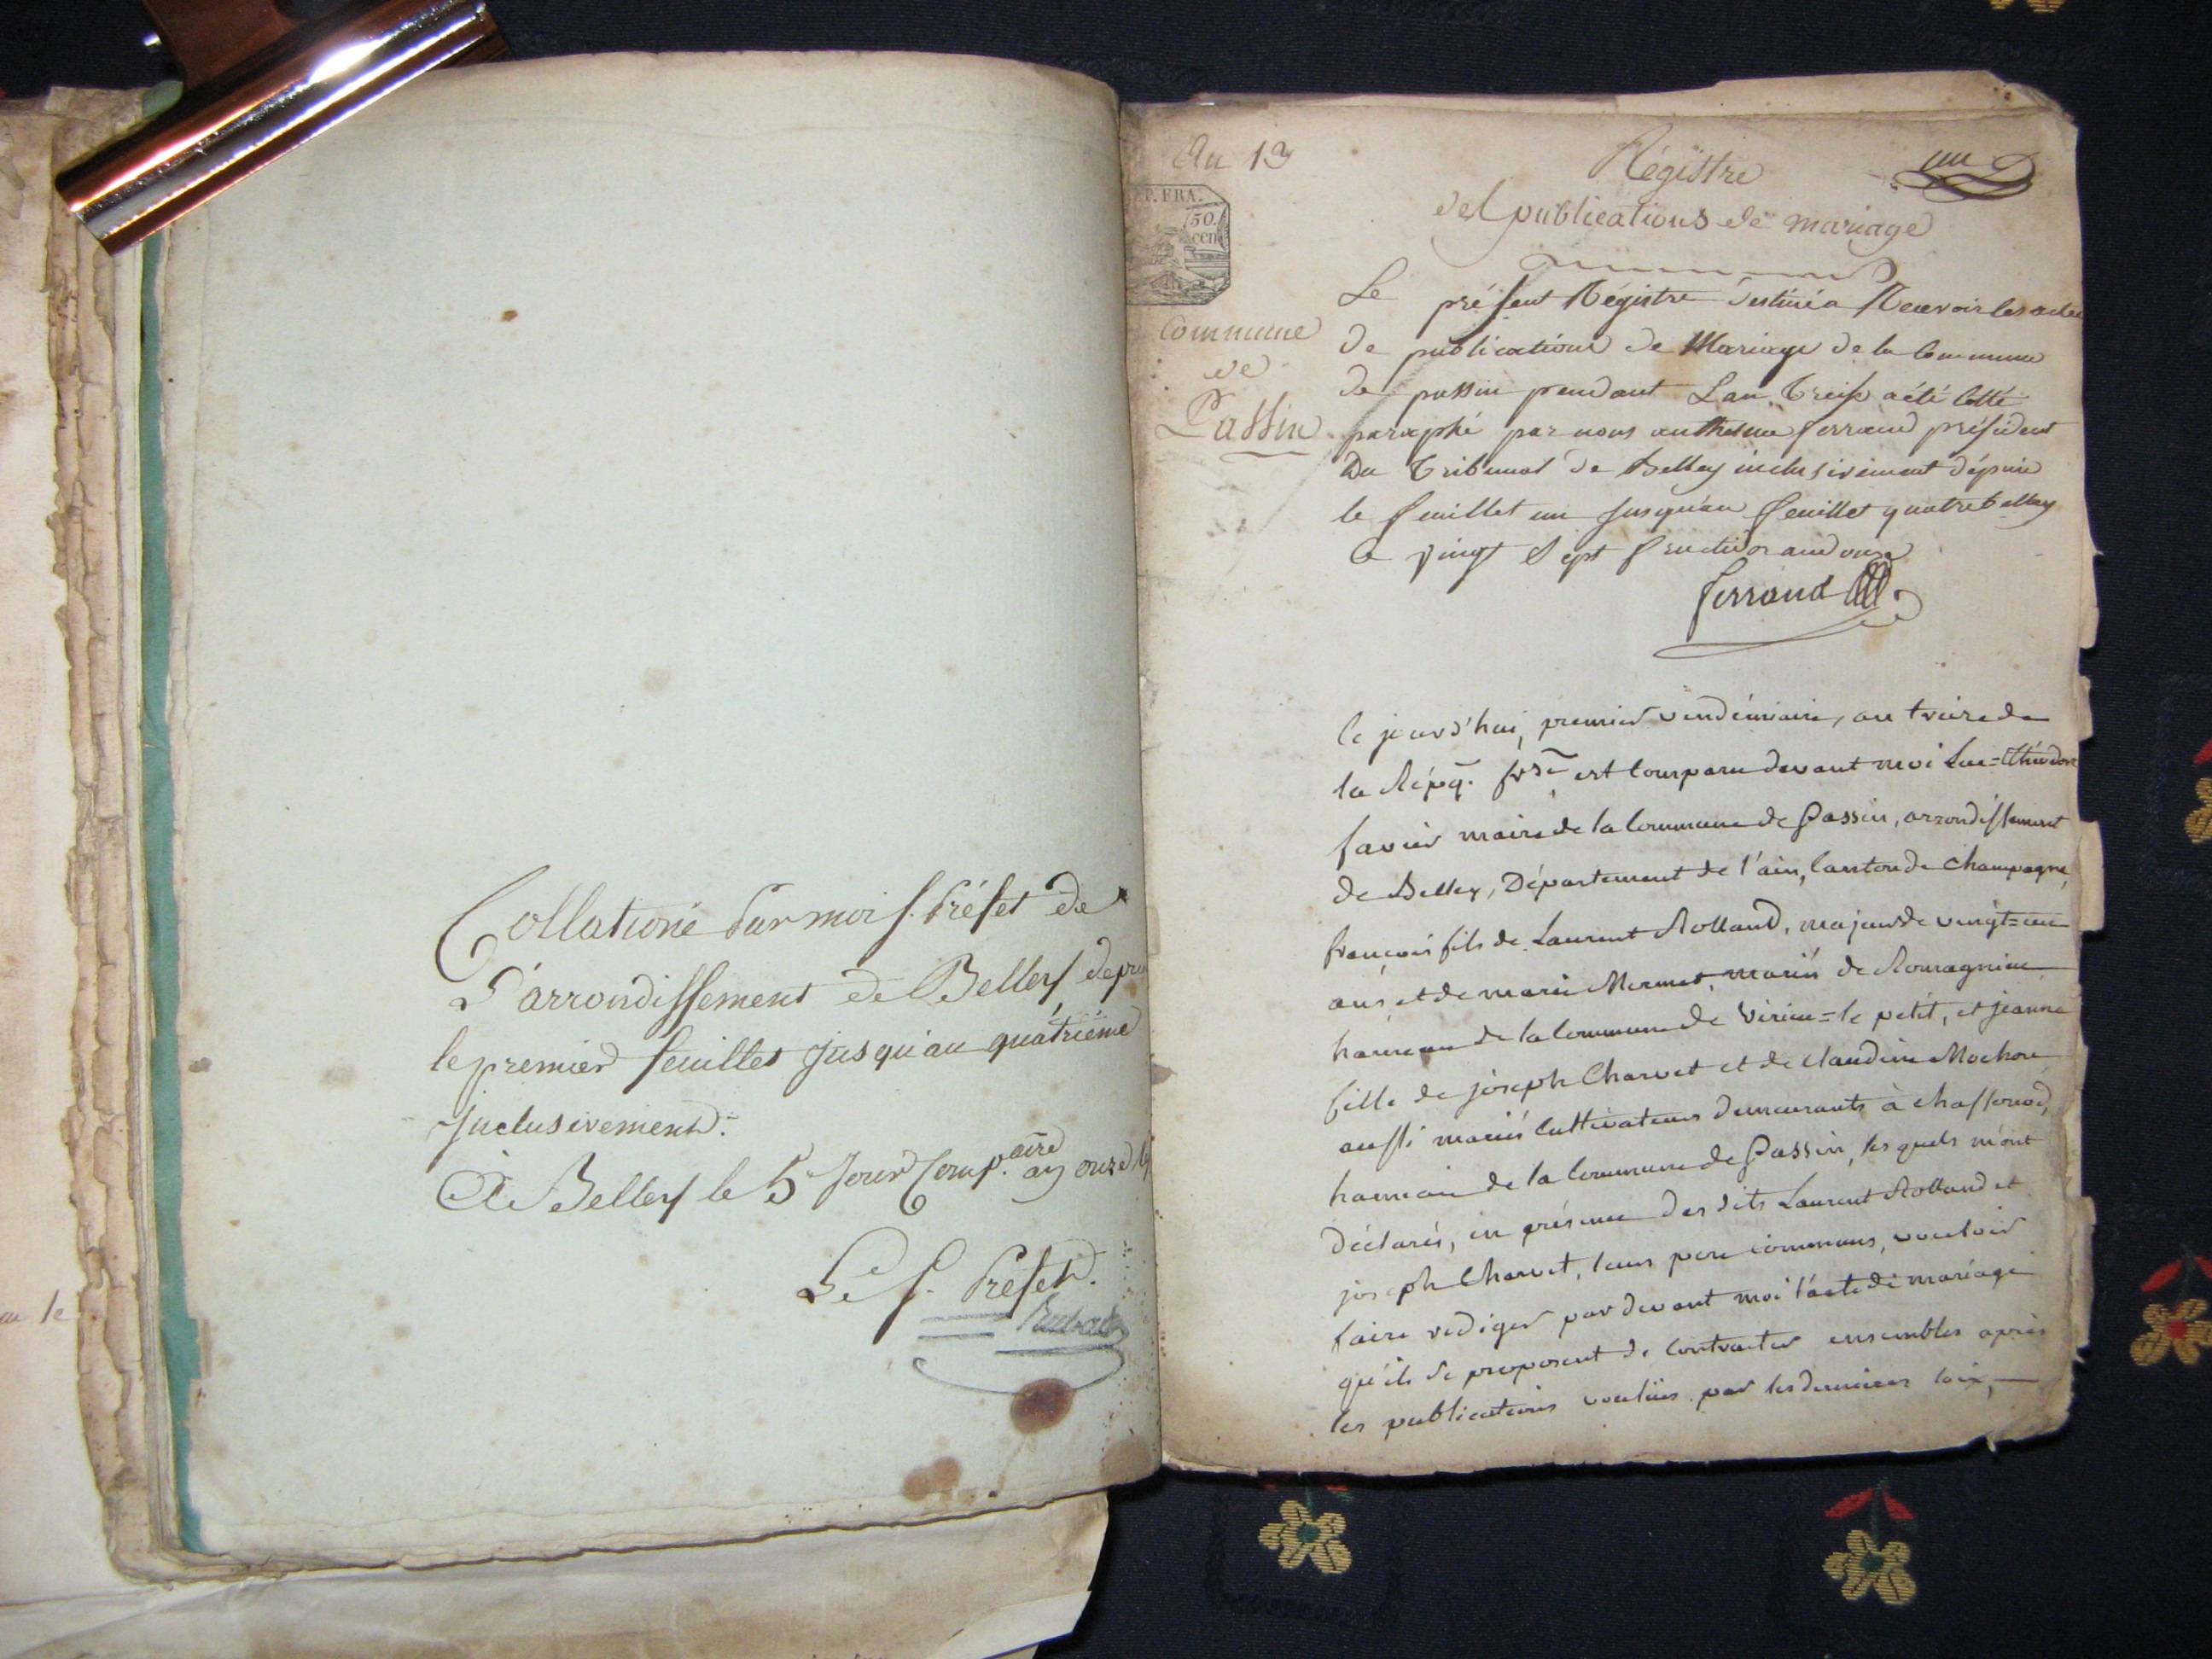 Collationé Par moi S. Préfet de
L'arrondissement de Belley depui
le premier feuillet jusqu'au quatrieme
Inclusivement.
A Belley le 5e Jour Comp.aire an onze
Le S. Préfet.
au le
An 13
P. FRA.
50.
cen
Commune
de
Passin
un
Régistre
des publications de mariage
Le présent Régistre destiné a Recevoir les actes
De publications de Mariage de la Commune
de passin pendant L'an Treise a été Cotté
paraphé par nous anthelme ferrand président
Du Tribunal de Belley inclusivement dépuis
le feuillet un jusqu'au feuillet quatre belley
le vingt Sept fructidor
ferrand
Ce jourd'hui, premier vendémiaire, an treize de
la Répq. frse est comparu devant moi Luc=Théodore
favier maire de la Commune de Passin, arrondissement
de Belley, Département de l'ain, Canton de Champagne,
françois fils de Laurent Rolland, majeur de vingt=un
ans, et de marie Mermet, mariés de Romagnieu
hameau de la Commune de Virieu=le petit, et jeanne
fille de joseph Charvet et de claudine Mochon
aussi mariés Cultivateurs demeurants à chassonod,
hameau de la Commune de Passin, les quels m'ont
déclarés, en présence des dits Laurent Rolland et
joseph Charvet, leurs pere communs, vouloir
faire rediger par devant moi l'acte de mariage
qu'ils se proposent de Contracter ensembles après
les publications voulües par les dernieres loix,